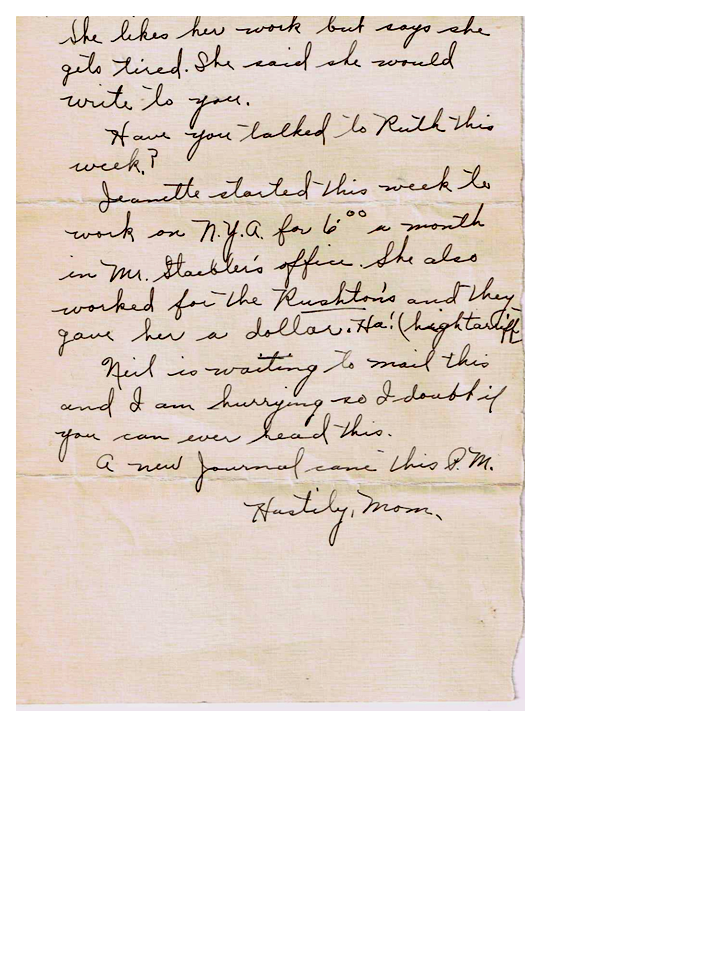 She likes her work but says she
gets tired. She said she would
write to you.
Have you talked to Ruth this
week?
Jeanette started this week to
work on N.Y.A. for 6⁰⁰ a month
in Mr. Staebler's office. She also
worked for the Rushton's and they
gave her a dollar. Ha! (hightariff
Neil is waiting to mail this
and I am hurrying so I doubt if
you can ever read this.
A new Journal came this P.M.
Hastily, Mom.